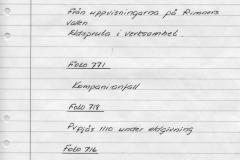 Från uppvisningarna på Rimners
vallen
Eldspruta i verksamhet.
Foto 771
Kompanianfall
Foto 718
Prpjäs 1110 under eldgivning
Foto 716